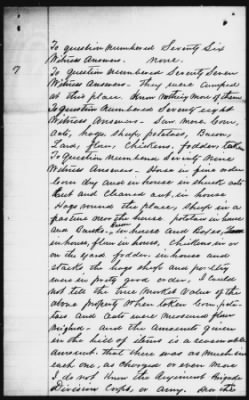 7
To question Numbered Seventy Six
Witness Answers. none.
To question Numbered Seventy Seven
Witness Answers - They were camped
at this place. Know nothing more of them
To Question Numbered Seventy eight
Witness Answers - Saw mare. Corn,
oats, hogs, sheep, potatoes, Bacon,
Lard, flour, Chickens, fodder, taken
To Question Numbered Seventy Nine
Witness Answers - Horse in fine order
Corn dry and in house
and Cleaned oats, in house
Hogs around the place, Sheep in a
pasture near the house. potatoes in house
and Banks, in house and Boxes,
in house, flour in house, Chickens in or
on the yard fodder in house and
stacks the hogs sheep and poultry
were in pretty good order. I could
not tell the true Market value of the
above property When taken Corn, pota-
toes and oats were measured flour
Weighed - and the amounts given
in the bill of items is a reasonable
amount. that there was as much in
each one, as charged or even more
I do not know the Regiment Brigade
Division Corps, or Army. the